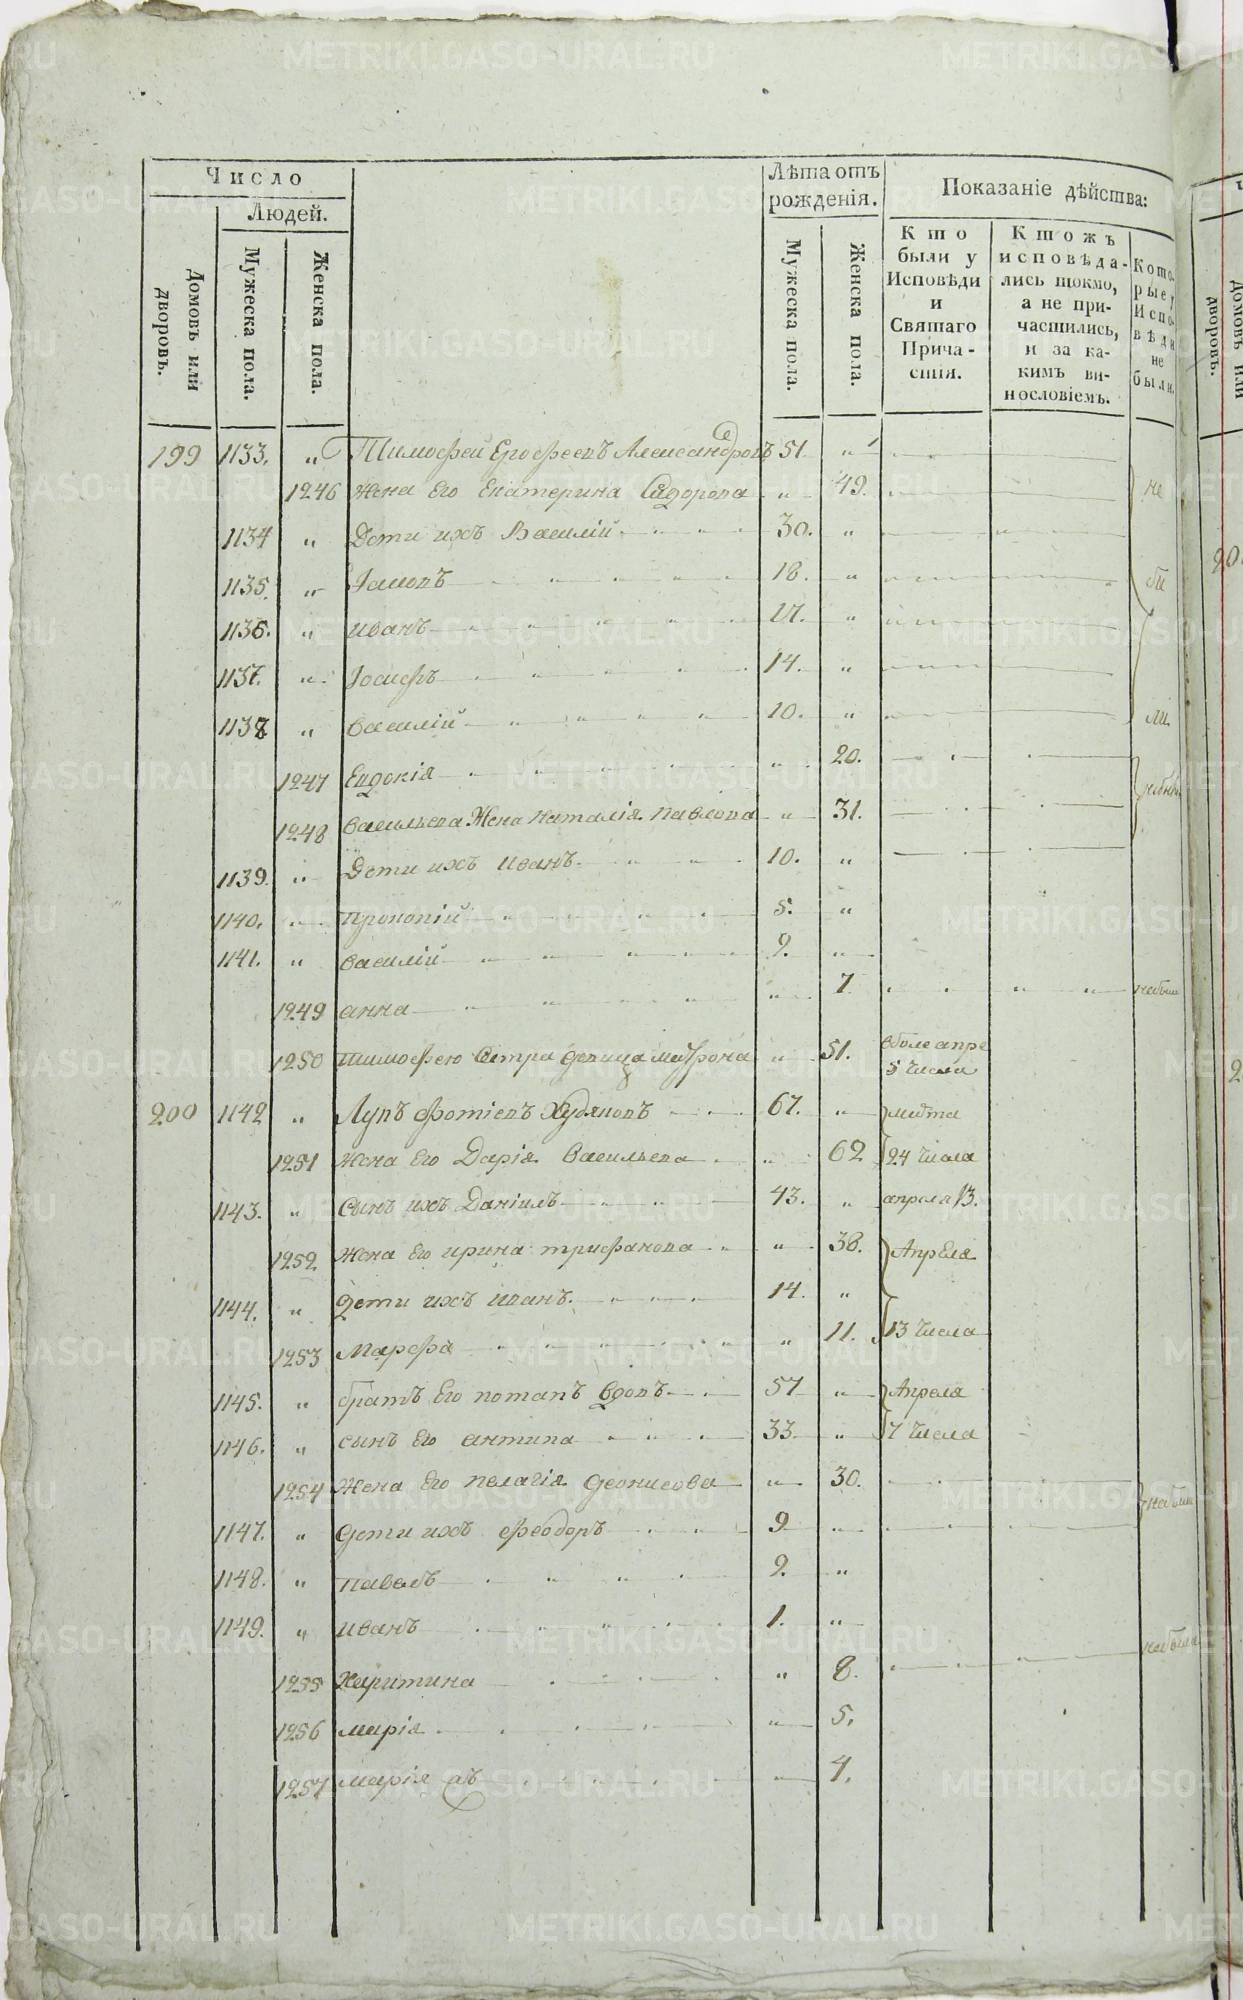 Число
Людей.
Домовъ или дворовъ.
Мужеска пола.
Женска пола.
Лѣта отъ рожденія.
Мужеска пола.
Женска пола.
Показаніе дѣйства:
Кто были у Исповѣди и Святаго Причастія.
Ктожъ исповѣдались токмо, а не причастились, и за какимъ винословіемъ.
Которые у Исповѣди не были.
199 1133. „ Тимофей Ерофеевъ Александровъ 51. „
1246 Жена Его Екатерина Сидорова „ 49. не
1134 „ Дети ихъ Василій 30. „
1135. „ Iаковъ 18. „ бы
1136. „ Иванъ 17. „
1137. „ Iосифъ 14. „
1138 „ Василій 10. „ ли.
1247 Евдокія „ 20.
1248 Васильева Жена Наталія Павлова „ 31.
1139. „ Дети ихъ Иванъ 10. „
1140. „ Прокопій 5. „
1141. „ Василій 2. „
1249 анна „ 7
1250 Тимофею Сестра девица Матрона „ 51. апре
5 Числа
200 1142 „ Лупъ Фотіевъ Худяковъ 67. „ марта
1251 Жена Его Дарія Васильева „ 62 24 Числа
1143. „ Сынъ ихъ Даніилъ 43. „ апреля 13.
1252 Жена Его ирина трифанова „ 38. Апреля
1144. „ Дети ихъ иванъ. 14. „
1253 Марфа „ 11. 13 Числа
1145. „ братъ Его потапъ вдовъ 57 „ Апреля
1146. „ сынъ Его антипа 33. „ 7 Числа
1254 Жена Его пелагія деонисова „ 30.
1147. „ дети ихъ феодоръ 9 „
1148. „ павелъ 2. „
1149. „ иванъ 1. „
1255 Харитина „ 8.
1256 марія „ 5.
1257 марія „ 4.
METRIKI.GASO-URAL.RU